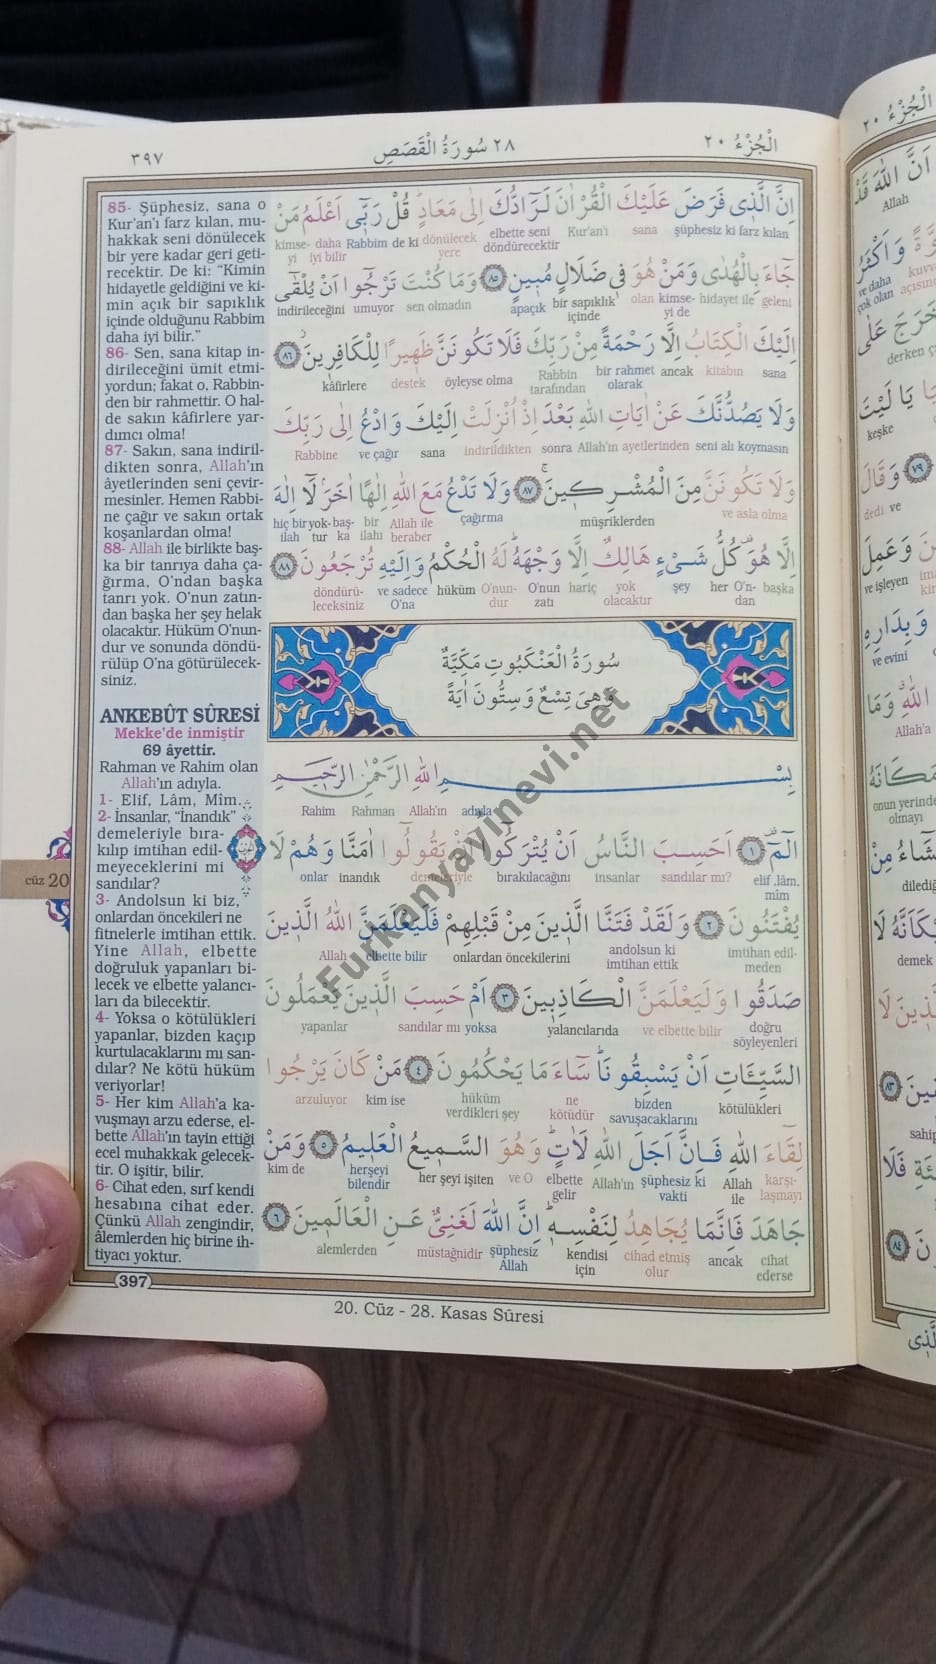 ٣٩٧
٢٨ سُورَةُ الْقَصَصِ
اَلْجُزْءُ ٢٠
85- Şüphesiz, sana o
Kur'an'ı farz kılan, mu-
hakkak seni dönülecek
bir yere kadar geri geti-
recektir. De ki: “Kimin
hidayetle geldiğini ve ki-
min açık bir sapıklık
içinde olduğunu Rabbim
daha iyi bilir.”
86- Sen, sana kitap in-
dirileceğini ümit etmi-
yordun; fakat o, Rabbin-
den bir rahmettir. O hal-
de sakın kâfirlere yar-
dımcı olma!
87- Sakın, sana indiril-
dikten sonra, Allah'ın
âyetlerinden seni çevir-
mesinler. Hemen Rabbi-
ne çağır ve sakın ortak
koşanlardan olma!
88- Allah ile birlikte baş-
ka bir tanrıya daha ça-
ğırma, O'ndan başka
tanrı yok. O'nun zatın-
dan başka her şey helak
olacaktır. Hüküm O'nun-
dur ve sonunda döndü-
rülüp O'na götürülecek-
siniz.
ANKEBÛT SÛRESİ
Mekke'de inmiştir
69 âyettir.
Rahman ve Rahim olan
Allah'ın adıyla.
1- Elif, Lâm, Mîm.
2- İnsanlar, “İnandık”
demeleriyle bıra-
kılıp imtihan edil-
meyeceklerini mi
sandılar?
3- Andolsun ki biz,
onlardan öncekileri ne
fitnelerle imtihan ettik.
Yine Allah, elbette
doğruluk yapanları bi-
lecek ve elbette yalancı-
ları da bilecektir.
4- Yoksa o kötülükleri
yapanlar, bizden kaçıp
kurtulacaklarını mı san-
dılar? Ne kötü hüküm
veriyorlar!
5- Her kim Allah'a ka-
vuşmayı arzu ederse, el-
bette Allah'ın tayin ettiği
ecel muhakkak gelecek-
tir. O işitir, bilir.
6- Cihat eden, sırf kendi
hesabına cihat eder.
Çünkü Allah zengindir,
âlemlerden hiç birine ih-
tiyacı yoktur.
cüz 20
اِنَّ الَّذٖى فَرَضَ عَلَيْكَ الْقُرْاٰنَ لَرَٓادُّكَ اِلٰى مَعَادٍ قُلْ رَبّٖٓى اَعْلَمُ مَنْ
şüphesiz ki farz kılan sana Kur'an'ı elbette seni dönülecek de ki Rabbim daha kimse-
döndürecektir yere iyi bilir yi
جَٓاءَ بِالْهُدٰى وَمَنْ هُوَ فٖى ضَلَالٍ مُبٖينٍ ٨٥ وَمَا كُنْتَ تَرْجُٓوا اَنْ يُلْقٰٓى
geleni hidayet ile kimse- olan bir sapıklık apaçık sen olmadın umuyor indirileceğini
yi de içinde
اِلَيْكَ الْكِتَابُ اِلَّا رَحْمَةً مِنْ رَبِّكَ فَلَا تَكُونَنَّ ظَهٖيرًا لِلْكَافِرٖينَ ٨٦
sana kitabın ancak bir rahmet Rabbin öyleyse olma destek kâfirlere
olarak tarafından
وَلَا يَصُدُّنَّكَ عَنْ اٰيَاتِ اللّٰهِ بَعْدَ اِذْ اُنْزِلَتْ اِلَيْكَ وَادْعُ اِلٰى رَبِّكَ
seni alı koymasın Allah'ın ayetlerinden sonra indirildikten sana ve çağır Rabbine
وَلَا تَكُونَنَّ مِنَ الْمُشْرِكٖينَ ٨٧ وَلَا تَدْعُ مَعَ اللّٰهِ اِلٰهًا اٰخَرَ لَٓا اِلٰهَ
ve asla olma müşriklerden çağırma Allah ile bir baş- yok- hiç bir
beraber ilahı ka tur ilah
اِلَّا هُوَ كُلُّ شَىْءٍ هَالِكٌ اِلَّا وَجْهَهُ لَهُ الْحُكْمُ وَاِلَيْهِ تُرْجَعُونَ ٨٨
başka O'n- her şey yok hariç O'nun O'nun- hüküm ve sadece döndürü-
dan olacaktır zatı dur O'na leceksiniz
سُورَةُ الْعَنْكَبُوتِ مَكِّيَّةٌ
وَهِىَ تِسْعٌ وَسِتُّونَ اٰيَةً
بِسْمِ اللّٰهِ الرَّحْمٰنِ الرَّحٖيمِ
adıyla Allah'ın Rahman Rahim
الٓمٓ ١ اَحَسِبَ النَّاسُ اَنْ يُتْرَكُٓوا اَنْ يَقُولُٓوا اٰمَنَّا وَهُمْ لَا
elif ,lâm, sandılar mı? insanlar bırakılacağını demeleriyle inandık onlar
mîm
يُفْتَنُونَ ٢ وَلَقَدْ فَتَنَّا الَّذٖينَ مِنْ قَبْلِهِمْ فَلَيَعْلَمَنَّ اللّٰهُ الَّذٖينَ
imtihan edil- andolsun ki onlardan öncekilerini elbette bilir Allah
meden imtihan ettik
صَدَقُوا وَلَيَعْلَمَنَّ الْكَاذِبٖينَ ٣ اَمْ حَسِبَ الَّذٖينَ يَعْمَلُونَ
doğru ve elbette bilir yalancılarıda yoksa sandılar mı yapanlar
söyleyenleri
السَّيِّـَٔاتِ اَنْ يَسْبِقُونَا سَٓاءَ مَا يَحْكُمُونَ ٤ مَنْ كَانَ يَرْجُوا
kötülükleri bizden ne hüküm kim ise arzuluyor
savuşacaklarını kötüdür verdikleri şey
لِقَٓاءَ اللّٰهِ فَاِنَّ اَجَلَ اللّٰهِ لَاٰتٍ وَهُوَ السَّمٖيعُ الْعَلٖيمُ ٥ وَمَنْ
karşı- Allah şüphesiz ki Allah'ın elbette ve O her şeyi işiten herşeyi kim de
laşmayı ile vakti gelir bilendir
جَاهَدَ فَاِنَّمَا يُجَاهِدُ لِنَفْسِهٖ اِنَّ اللّٰهَ لَغَنِىٌّ عَنِ الْعَالَمٖينَ ٦
cihat ancak cihad etmiş kendisi şüphesiz müstağnidir alemlerden
ederse olur için Allah
397
20. Cüz - 28. Kasas Sûresi
Furkanyayinevi.net
اَلْجُزْءُ ٢٠
اَنَّ اللّٰهَ قَدْ
Allah
وَاَكْثَرُ
ve daha
çok olan
عَلٰى
يَا لَيْتَ
keşke
٧٩ وَقَالَ
dedi ve
وَعَمِلَ
ve işleyen
وَبِدَارِهِ
ve evini
اللّٰهِ وَمَا
Allah'a
مَكَانَهُ
onun yerinde
olmayı
مِنْ
لَا
demek
لَا
٨٣
فَلَا
٨٤